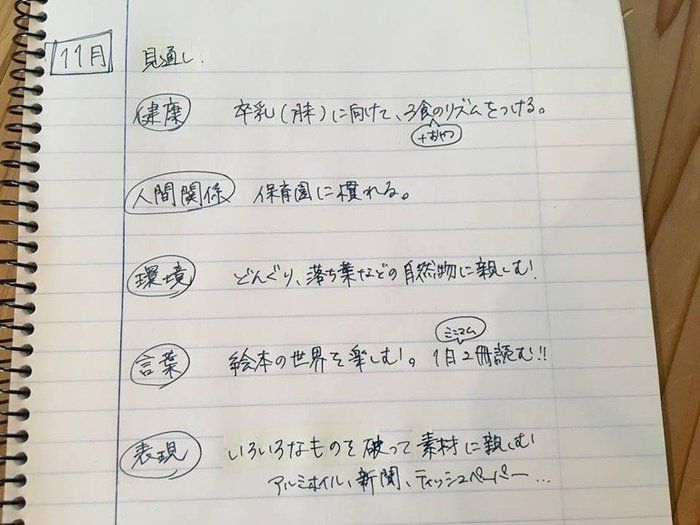 11月 見通し.
健康 卒乳(12月末)に向けて、3食のリズムをつける。
+おやつ
人間関係 保育園に慣れる。
環境 どんぐり、落ち葉などの自然物に親しむ!
ミニマム
言葉 絵本の世界を楽しむ!。1月2冊読む!!
表現 いろいろなものを破って素材に親しむ
アルミホイル、新聞、ティッシュペーパー…